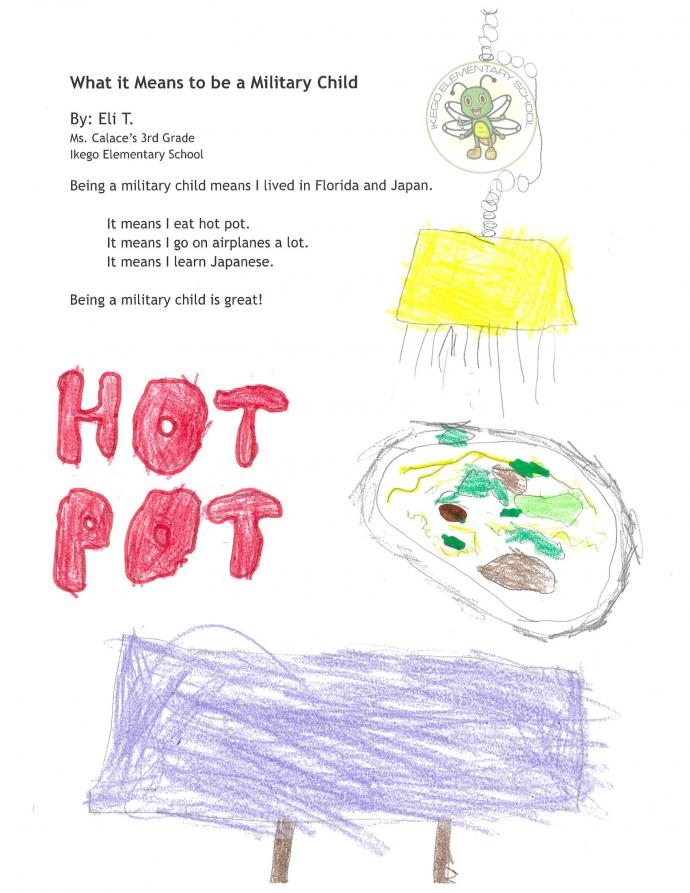 IKEGO ELEMENTARY SCHOOL
What it Means to be a Military Child
By: Eli T.
Ms. Calace's 3rd Grade
Ikego Elementary School
Being a military child means I lived in Florida and Japan.
It means I eat hot pot.
It means I go on airplanes a lot.
It means I learn Japanese.
Being a military child is great!
HOT
POT